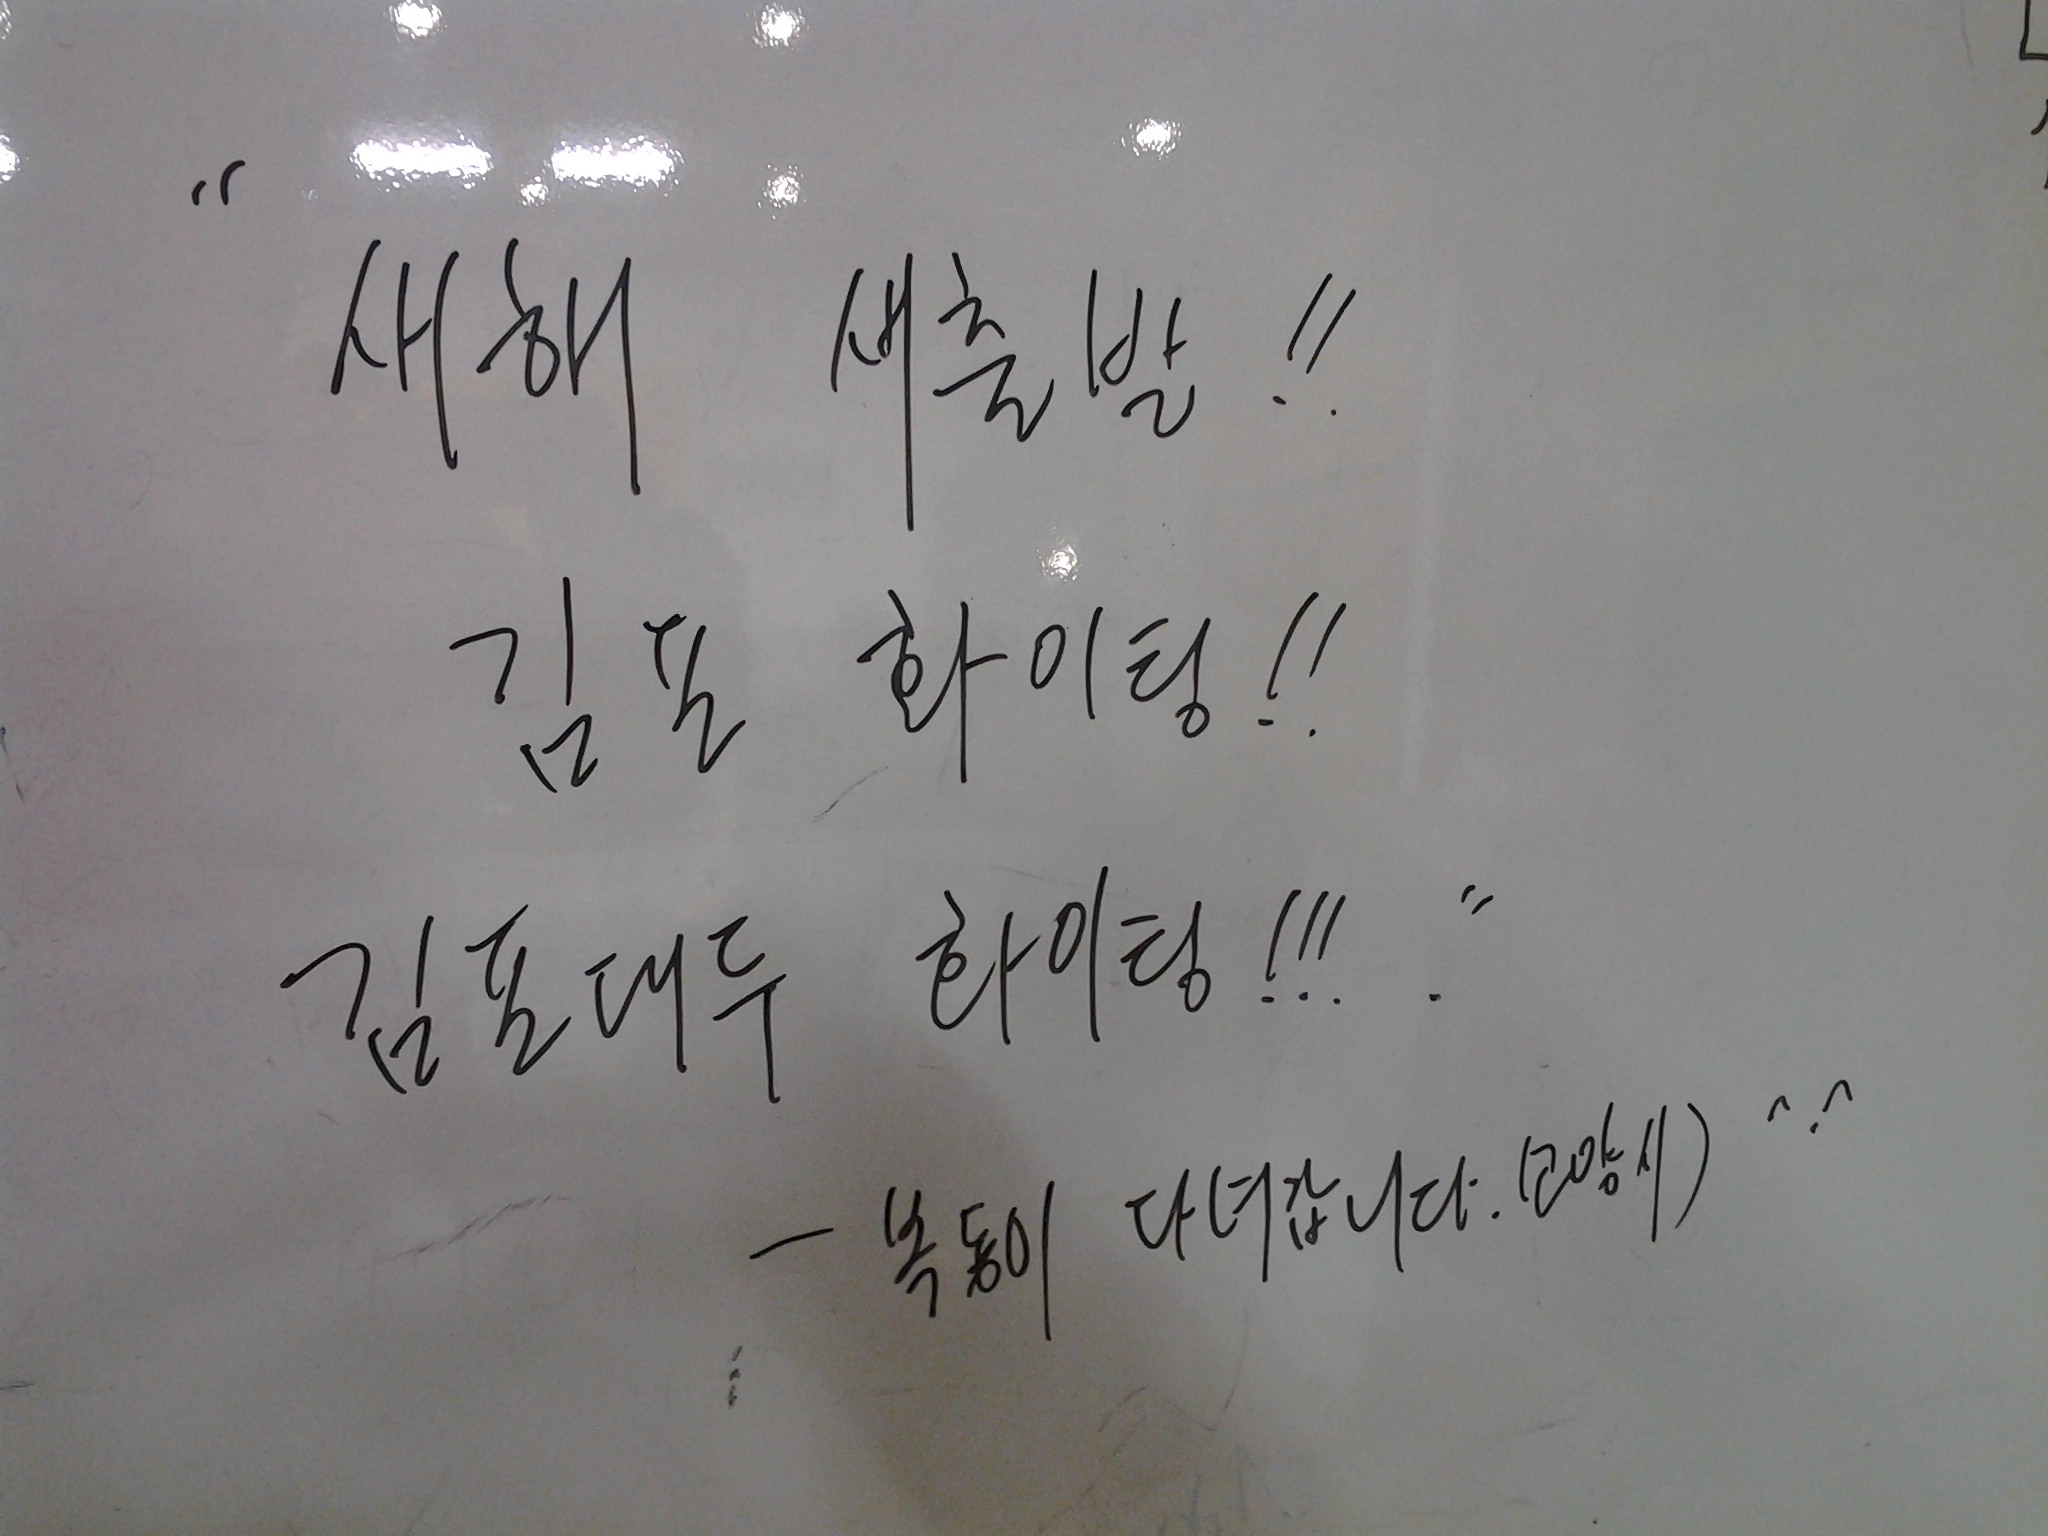 “
새해 새출발!!
김포 화이팅!!
김포대두 화이팅!!! . ”
- 복동이 다녀갑니다. (고양시) ^.^